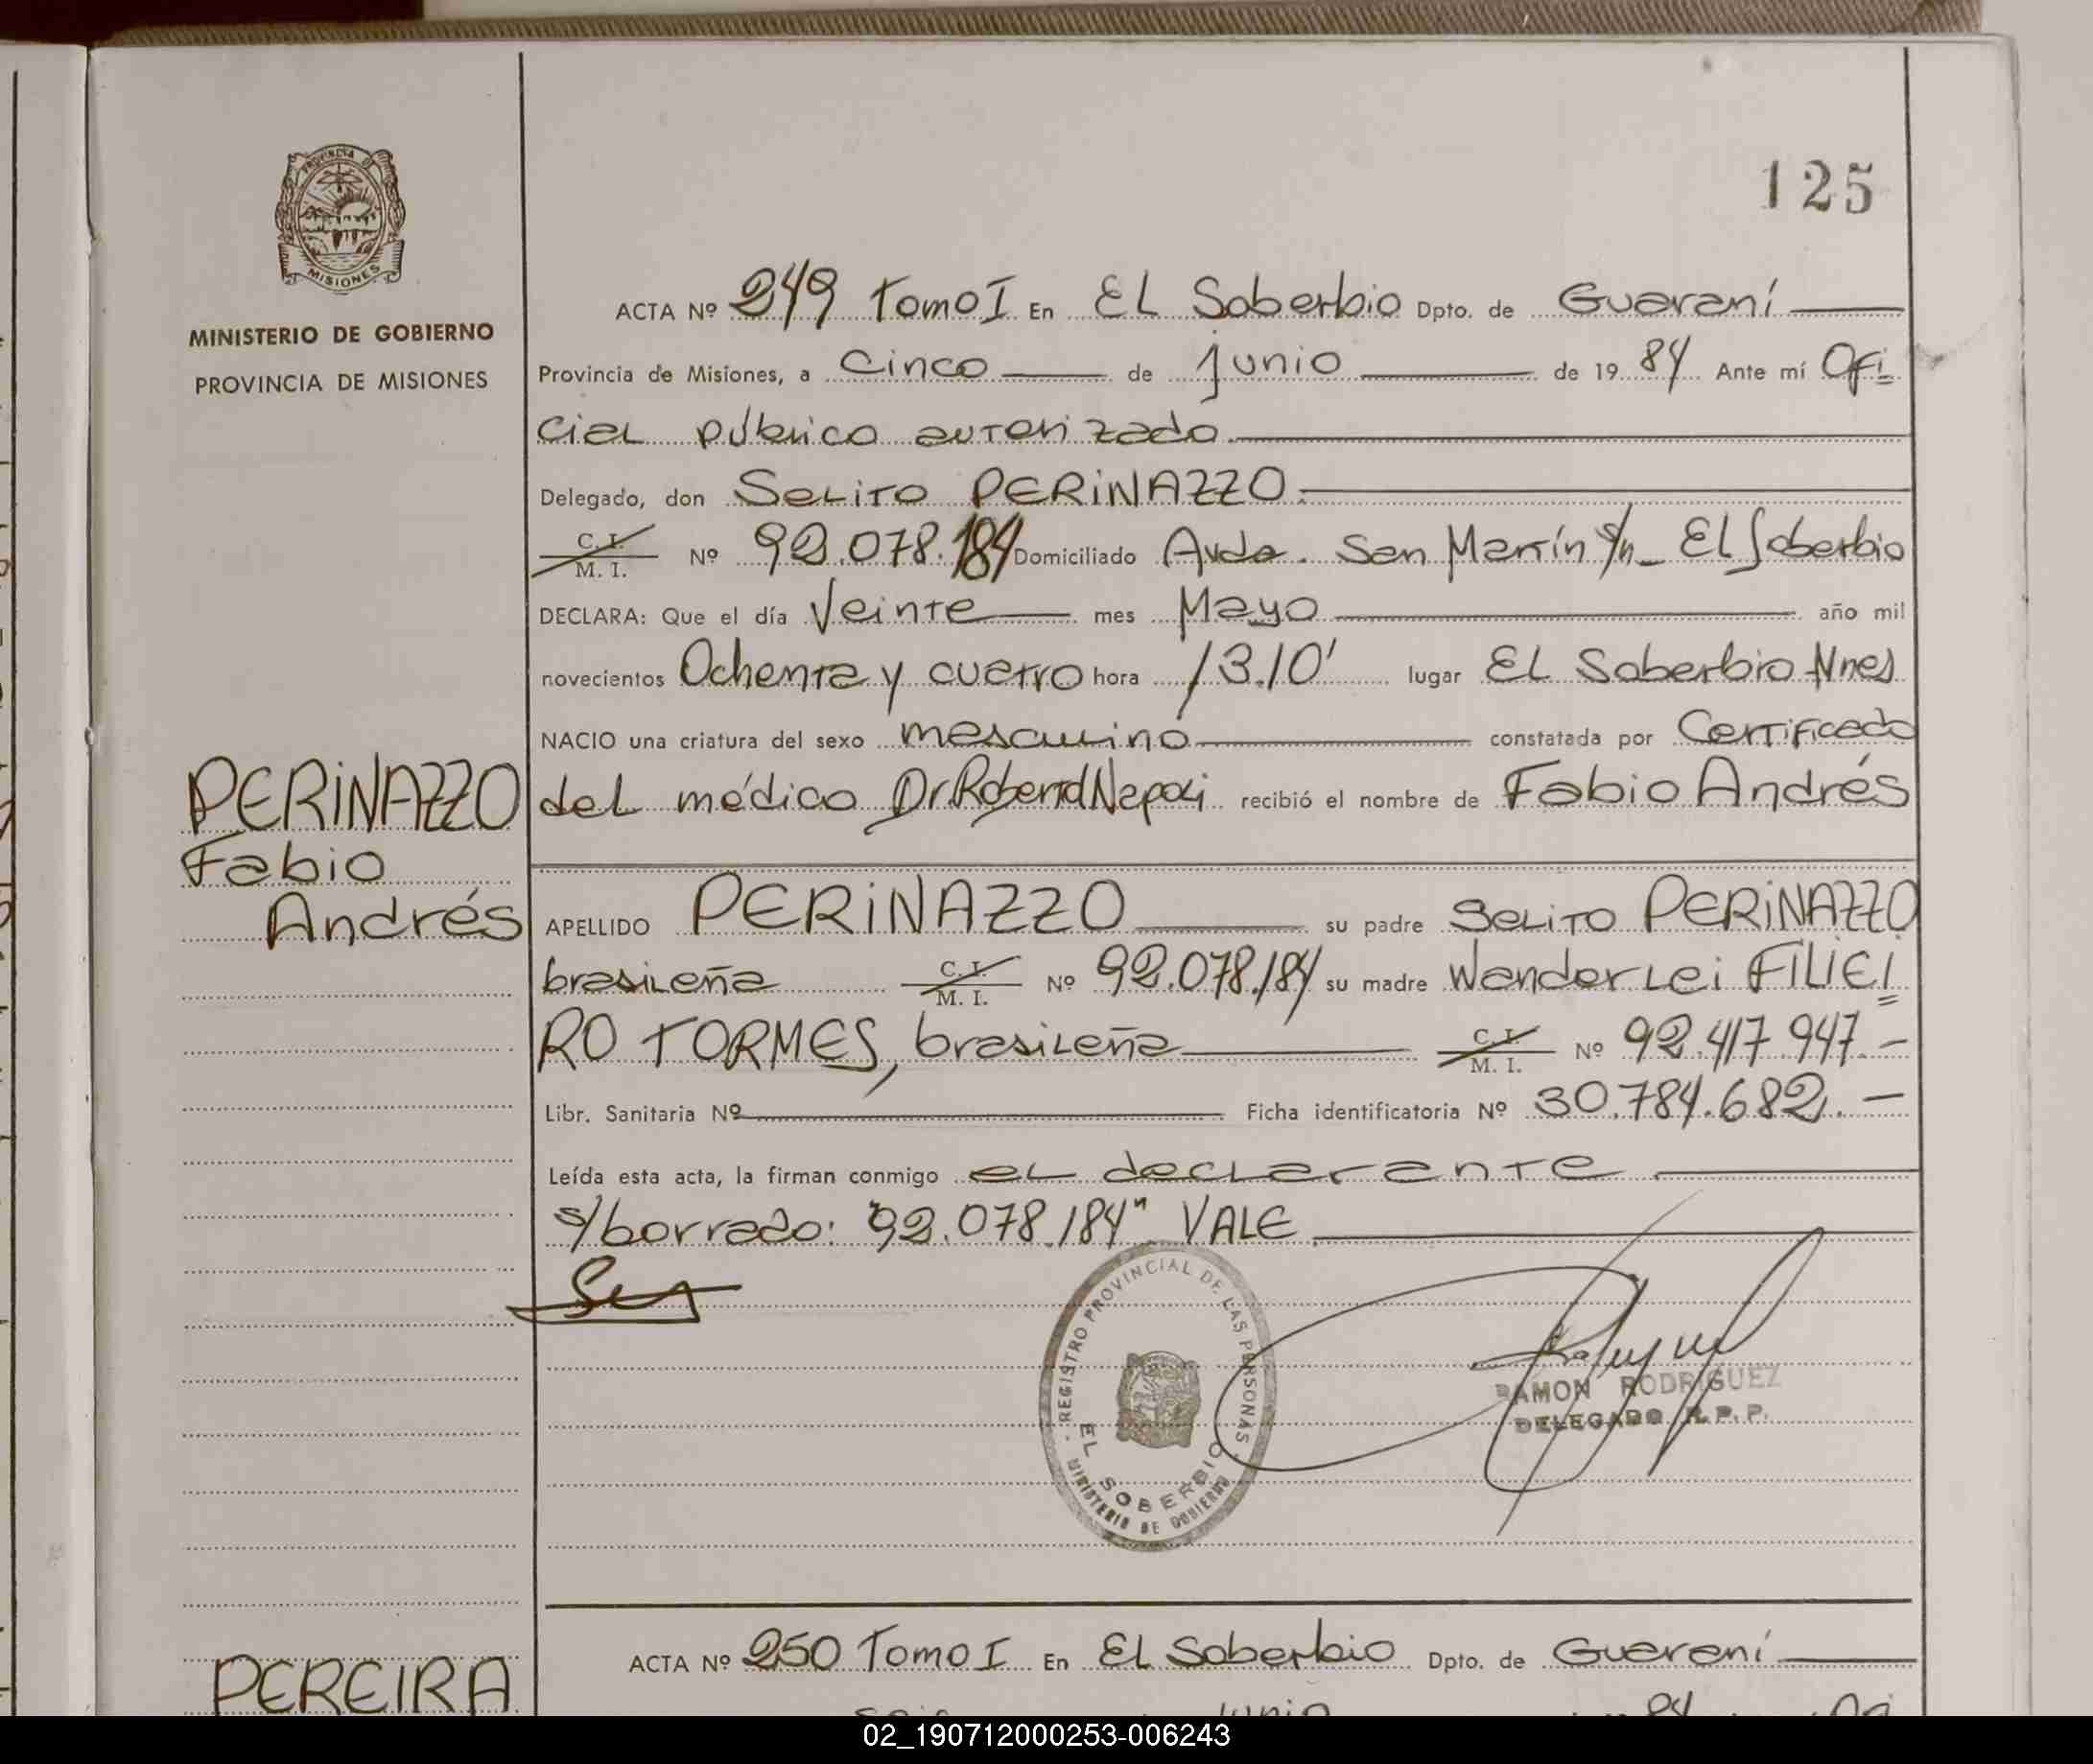 125
PROVINCIA DE
MISIONES
MINISTERIO DE GOBIERNO
PROVINCIA DE MISIONES
ACTA Nº 249 Tomo I En El Soberbio Dpto. de Guaraní
Provincia de Misiones, a Cinco de Junio de 1984 Ante mí Ofi
cial público autorizado
Delegado, don Selito PERINAZZO
C. I. M. I. Nº 92.078.184 Domiciliado Avda. San Martín s/n - El Soberbio
DECLARA: Que el día Veinte mes Mayo año mil
novecientos Ochenta y cuatro hora 13.10' lugar El Soberbio Mnes
NACIO una criatura del sexo masculino constatada por Certificado
del médico Dr. Roberto Napoli recibió el nombre de Fabio Andrés
PERINAZZO
Fabio
Andrés
APELLIDO PERINAZZO su padre Selito PERINAZZO
brasileña C. I. M. I. Nº 92.078.184 su madre Wanderlei FILIEI
RO TORMES, brasileña C. I. M. I. Nº 92.417.947.-
Libr. Sanitaria Nº Ficha identificatoria Nº 30.784.682.-
Leída esta acta, la firman conmigo el declarante
s/borrado: 92.078.184" VALE
REGISTRO PROVINCIAL DE LAS PERSONAS
EL SOBERBIO
MINISTERIO DE GOBIERNO
RAMON RODRIGUEZ
DELEGADO R.P.P.
PEREIRA
ACTA Nº 250 Tomo I En El Soberbio Dpto. de Guaraní
02_190712000253-006243